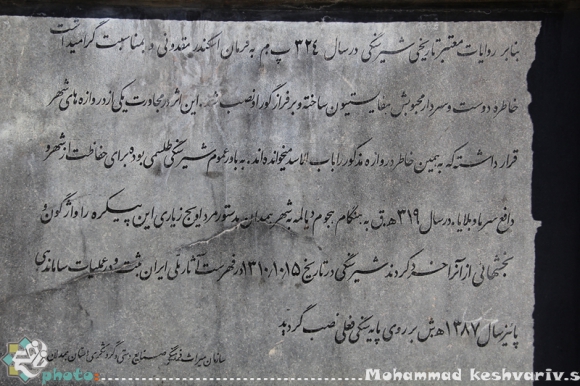 بنابر روایات معتبر تاریخی شیرسنگی در سال ۳۲۴ پ.م به فرمان اسکندر مقدونی و بمناسبت گرامیداشت
خاطره دوست و سردار محبوبش هفایستیون ساخته و برفراز گور او نصب شد. این اثر در مجاورت یکی از دروازه های شهر
قرار داشته که به همین خاطر دروازه مذکور را باب الاسد میخوانده اند. به باور عموم شیرسنگی طلسمی بوده برای حفاظت از شهر و
دافع سرما و بلایا. در سال ۳۱۹ ه.ق به هنگام هجوم دیالمه به شهر همدان به دستور مرداویج زیاری این پیکره را واژگون و
بخشهائی از آنرا خرد کردند شیرسنگی در تاریخ ۱۳۱۰/۱۰/۱۵ در فهرست آثار ملی ایران ثبت و در عملیات ساماندهی
پائیز سال ۱۳۸۷ ه.ش بر روی پایه سنگی فعلی نصب گردید
سازمان میراث فرهنگی، صنایع دستی و گردشگری استان همدان
photo:
Mohammad keshvariv.s